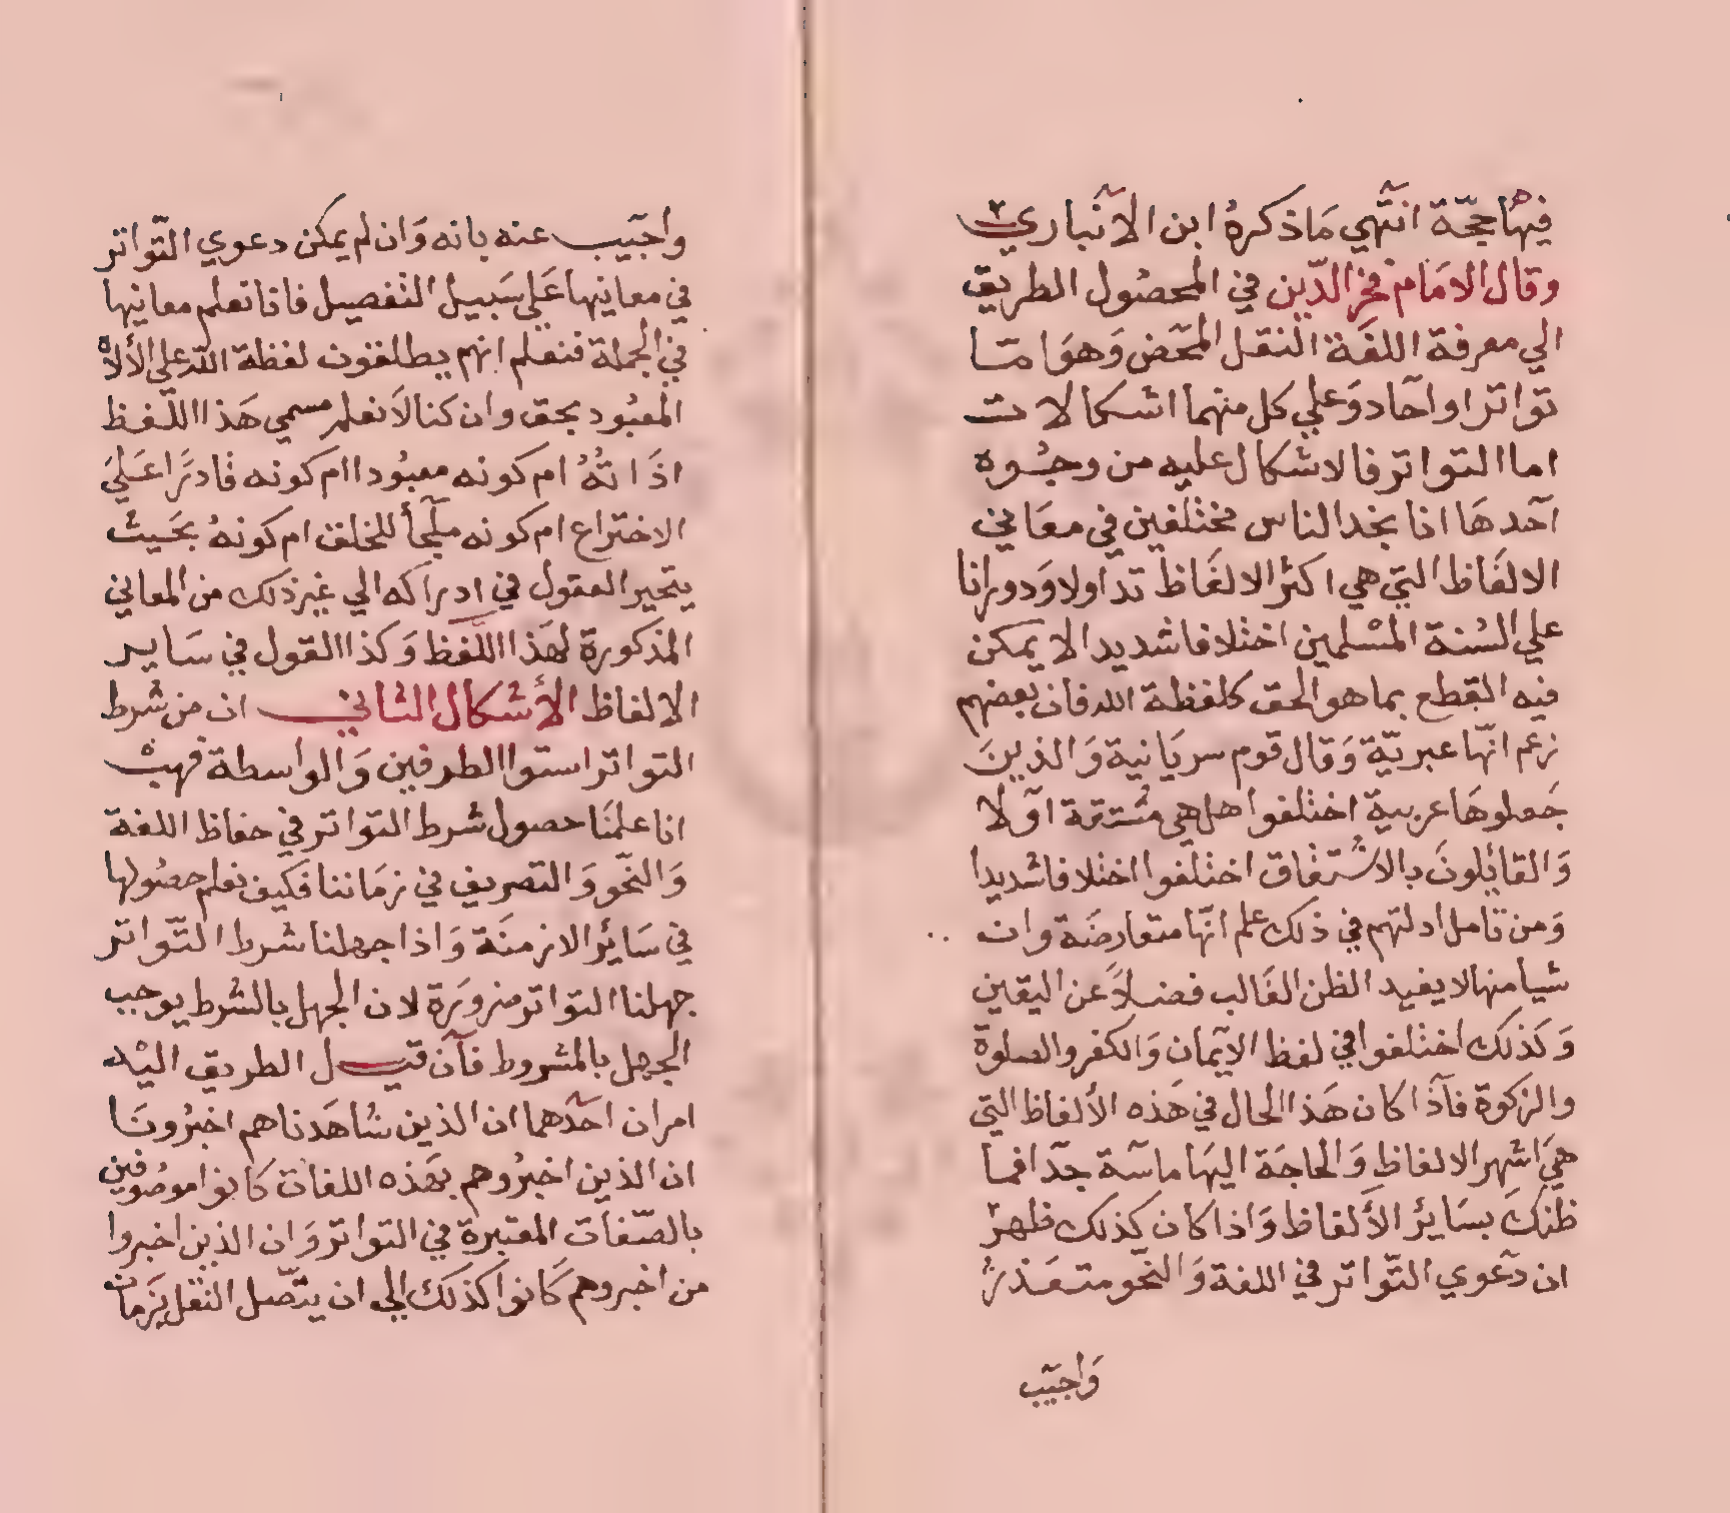 فيها حجّة انتهي مَا ذكرهُ ابن الانباري
وقال الامَام فخر الدّين في المحصُول الطريق
الي معرفة اللغَة النقل المحَض وَهوَ امّا
تواتر او آحاد وَعلي كل منهما اشكالات
اما التواتر فالاشكال عليه من وجُوه
آحدهَا انا نجد الناس مختلفين في معَاني
الالفَاظ التي هي اكثر الالفَاظ تداولا وَدورانا
علي السُنة المسْلمين اختلافا شديدا لا يمكن
فيه القطع بما هو الحق كلفظة الله فان بعضهم
زعم انّها عبريّة وَقال قوم سريَانية وَالذينَ
جَعلوهَا عربية اختلفوا هل هي مشتقة آو لا
وَالقائِلونَ بالاشْتقاق اختلفوا اختلافا شديدا
وَمن تامل ادلتهم في ذلك علم انّها متعارضَة وان
شيا منها لا يفيد الظن الغَالب فضلاً عن اليقين
وَكذلك اختلفوا في لفظ الايّمان وَالكفر والصلوة
والزكوة فآذا كان هَذا الحال في هَذه الألفاظ التي
هيَ اشهر الالفاظِ وَالحاجَة اليهَا ماسّة جدّا فما
ظنكَ بسَائر الأَلفاظ وَاذا كان كذلك ظهرْ
ان دعَوي التّواتر في اللغة وَالنحَو متعَذرُ
وَاجيّب
واجيّب عنه بانه وَان لم يمكن دعوي التّواتر
في معانيها عَلي سَبيل التفصيل فانا نعلم معانيها
في الجملة فنعلم انهم يطلقون لفظة الله علي الألاه
المعبُود بحق وان كنا لاَ نعلم مسمي هَذا اللّفظ
اذَاتُهُ ام كونه معبُودا ام كونه قادرًا عَليَ
الاختراع ام كونه ملّجأ للخلق ام كونهُ بحَيث
يتحير العقول في ادراكه الي غير ذلك من المعاني
المذكورة لهَذا اللّفظ وَكذا القول في سَاير
الالفاظ الأشكال الثاني ان من شرط
التواتر استوا الطرفين وَالواسطة فهبْ
انا علمنَا حصول شرط التواتر في حفاظ اللغة
وَالنحّو وَالتصريف في زمَاننا فكيف نعلم حصُولها
في سَائر الازمنَة وَاذا جهلنا شرط التّواتر
جهلنا التواتر ضرورَة لان الجهل بالشرط يوجب
الجهل بالمشروط فآن قيل الطريق اليْه
امران احَدهما ان الذين شاهَدناهم اخبرُونَا
ان الذين اخبرُوهم بهَذه اللغات كانوا موصُوفين
بالصّفات المعتبرة في التواتر وَان الذين اخبروا
من اخبروهم كَانوا كذلك الي ان يتّصل النقل بزَمان